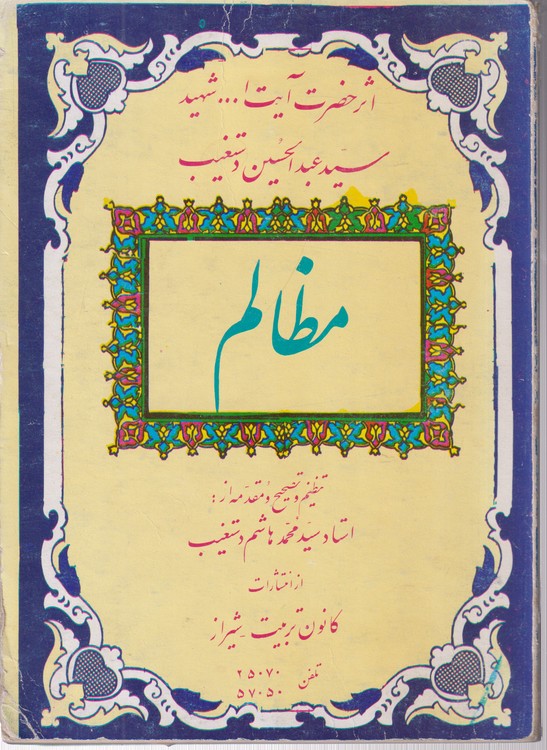 اثر حضرت آیت ا... شهید
سیّد عبدالحسین دستغیب
مظالم
تنظیم و تصحیح و مقدّمه از:
استاد سیّد محمّد هاشم دستغیب
از انتشارات
کانون تربیت - شیراز
تلفن ۲۵۰۷۰
۵۷۰۵۰